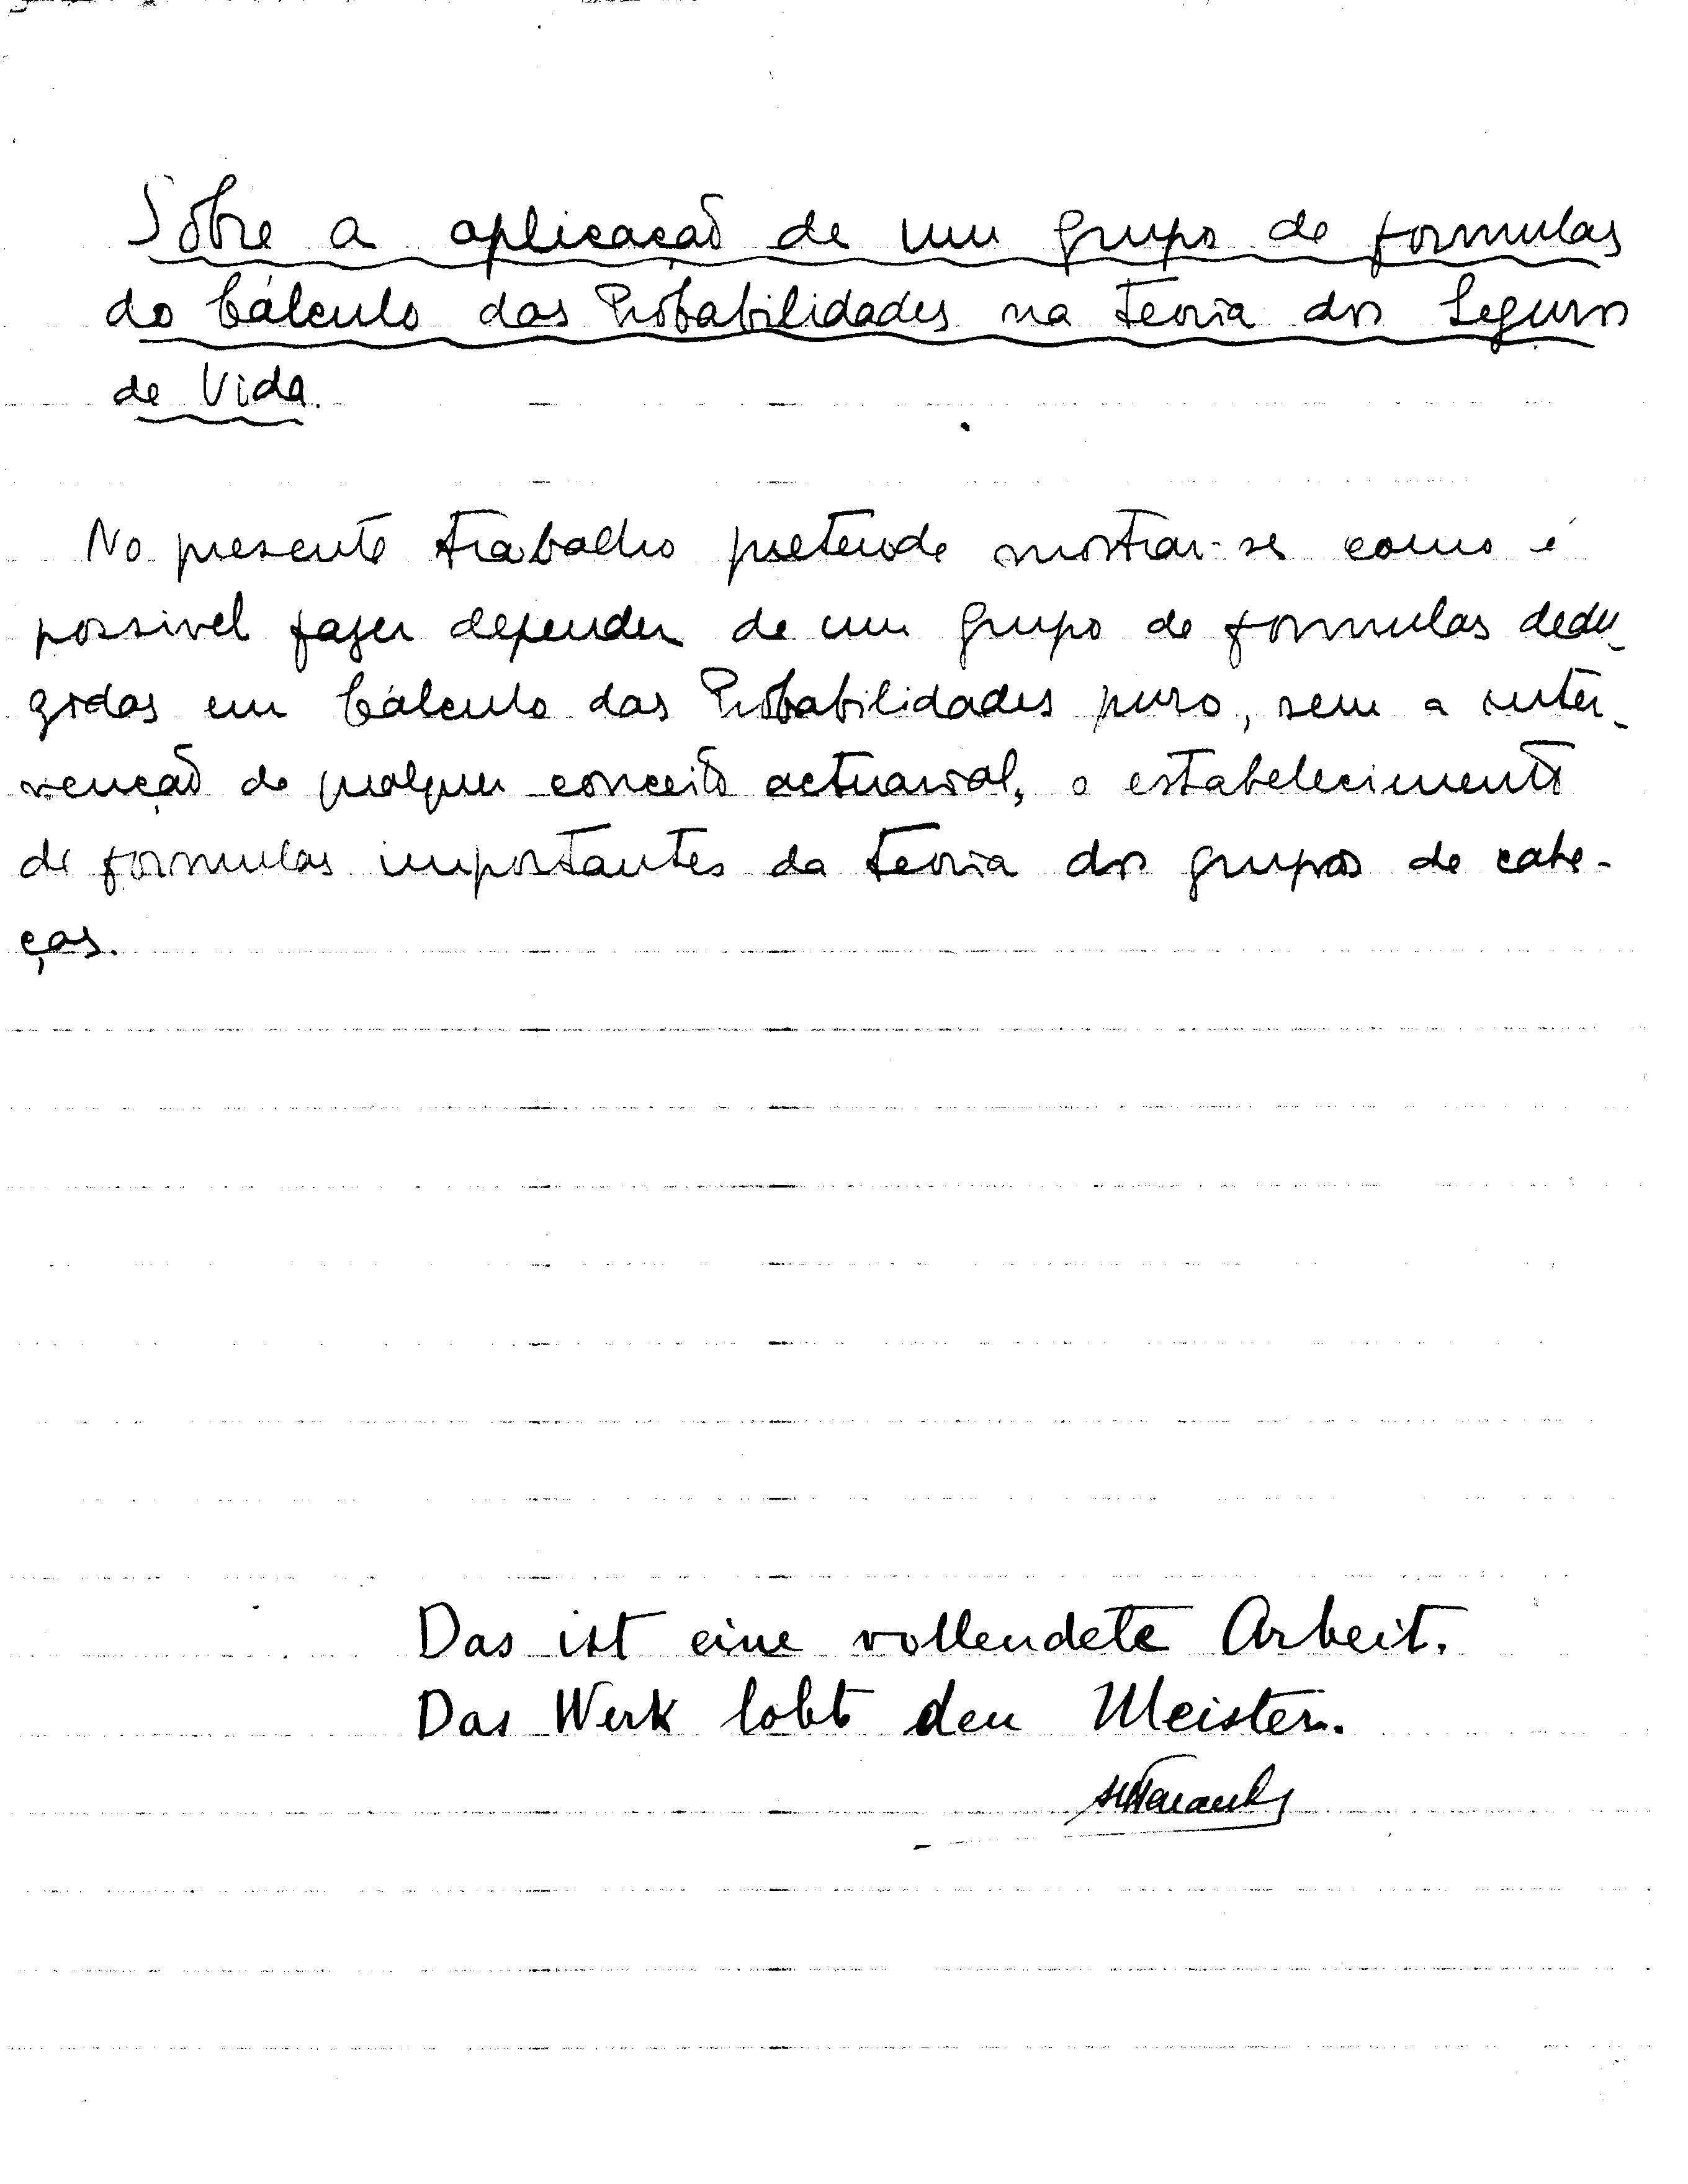 Sôbre a aplicação de um grupo de formulas
do Cálculo das Probabilidades na teoria dos Seguros
de Vida.
No presente trabalho pretende mostrar-se como é
possivel fazer depender de um grupo de formulas dedu-
zidas em Cálculo das Probabilidades puro, sem a inter-
venção de qualquer conceito actuarial, o estabelecimento
de formulas importantes da teoria dos grupos de cabe-
ças.
Das ist eine vollendete Arbeit.
Das Werk lobt den Meister.